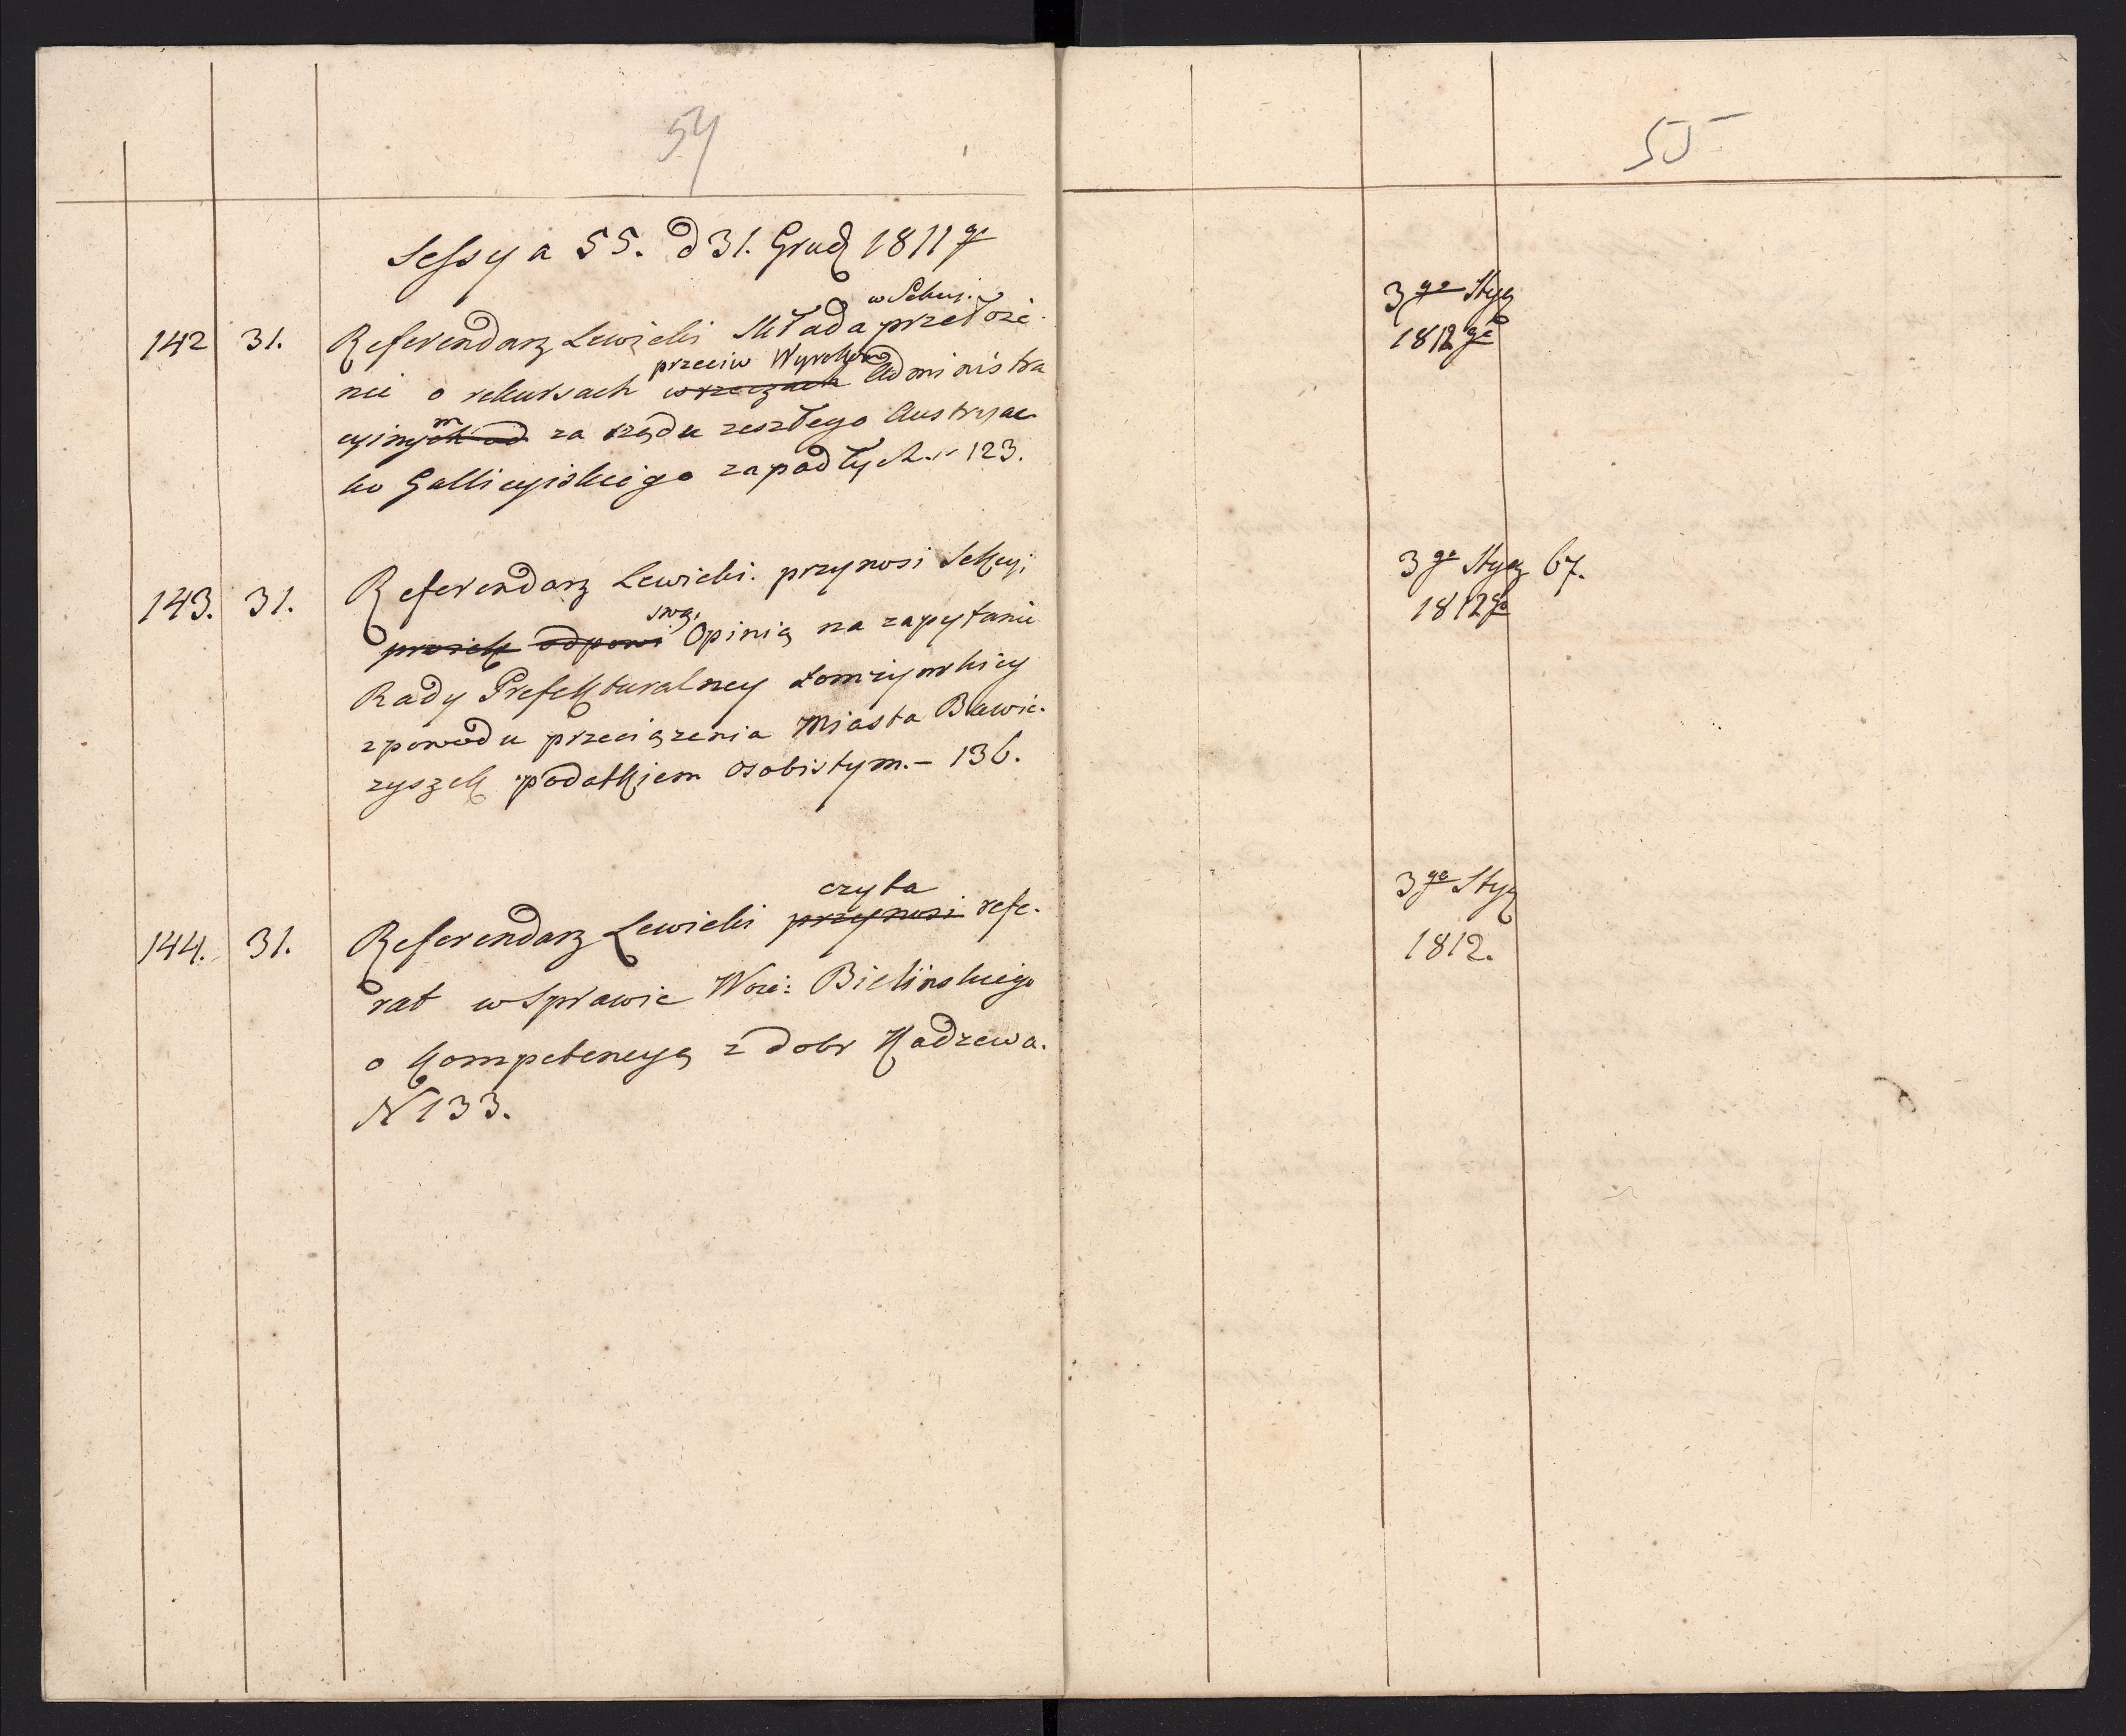 54
Sessya 55. d 31. Grud 1811 go
142 31. Referendarz Lewicki składa w Sekcyi. przełoże-
nie o rekursach przeciw Wyrokom w rzeczach Administra
cyinych m od za rządu zeszłego Austryac-
ko Gallicyiskiego zapadłych. 123.
143. 31. Referendarz Lewicki. przynosi Sekcyi
projekt odpowi swą Opinią na zapytanie
Rady Prefekturalney Łomżyńskiey
z powodu przeciążenia Miasta Bawie-
ryszek podatkiem osobistym. - 136.
144. 31. Referendarz Lewicki przynosi czyta refe-
rat w Sprawie Woie: Bielinskiego
o kompetencyą z dobr Kadzewa.
N 133.
55
3 go Stycz
1812 go
3 go Stycz 67.
1812 go
3 go Stycz
1812.